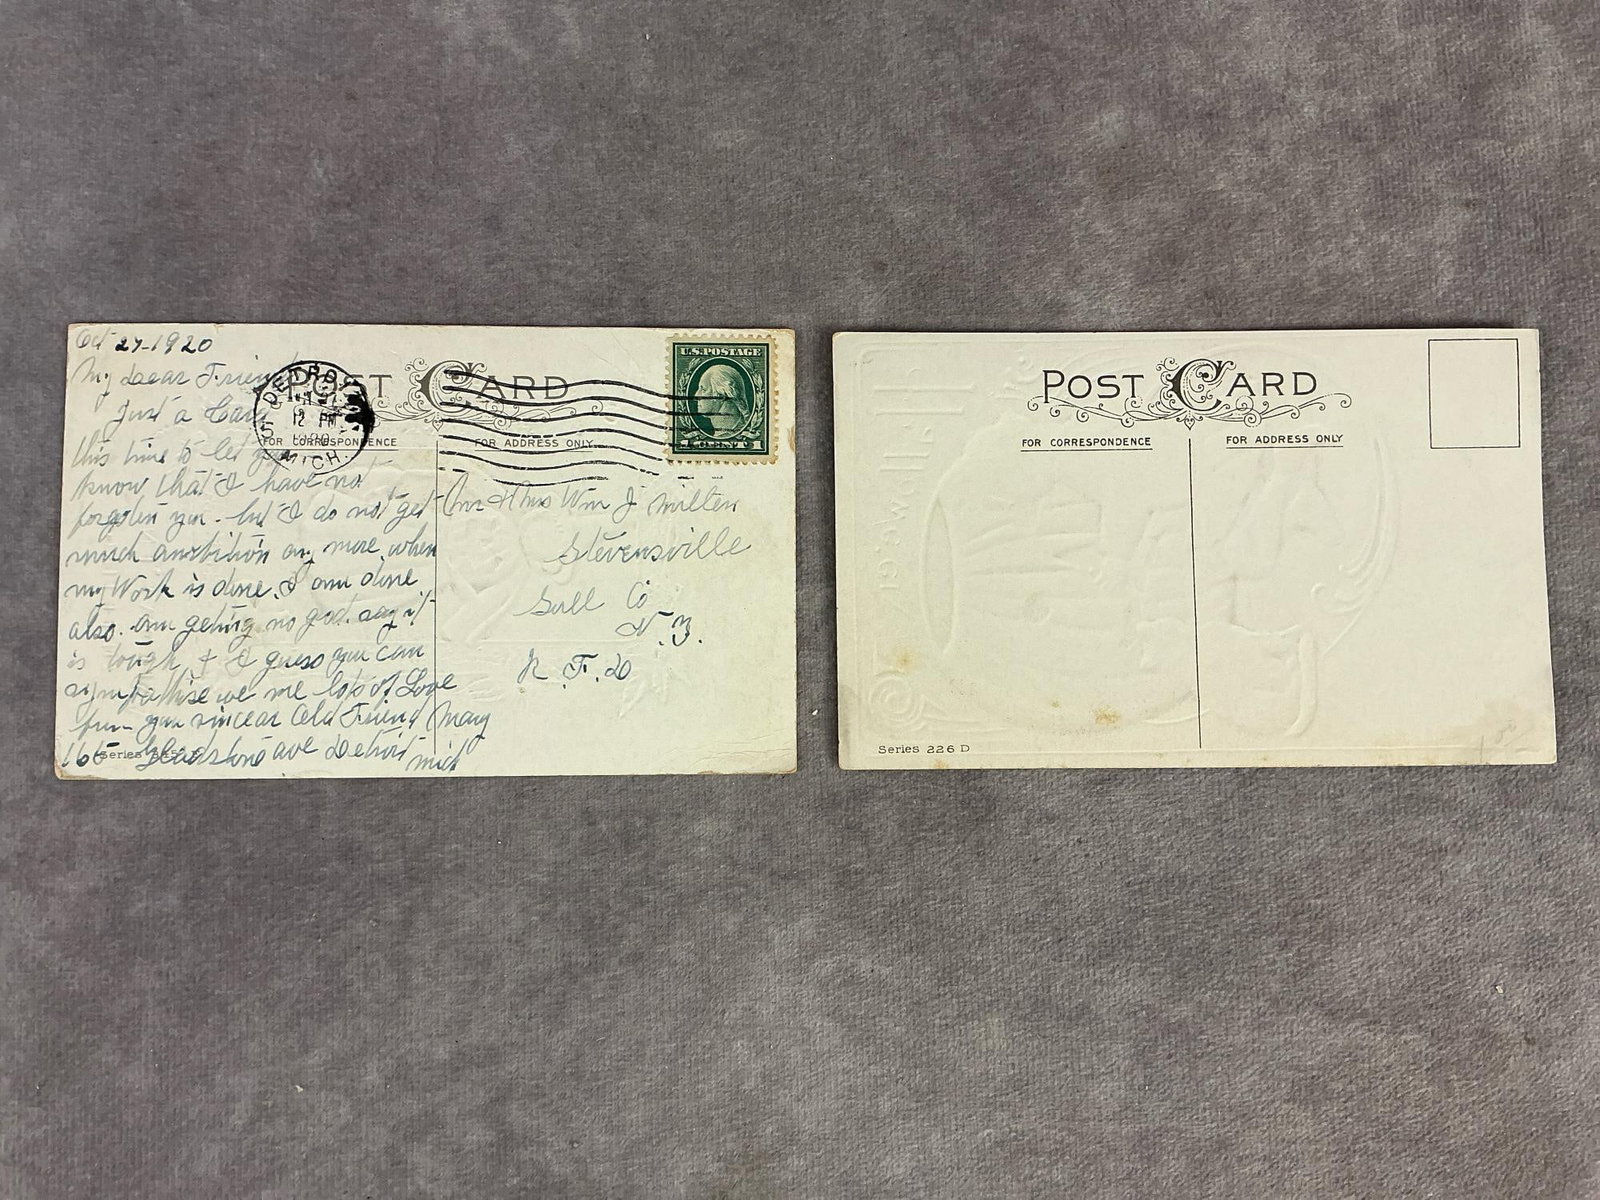 Oct 27-1920
My Daear Friend
Just a Card
this time to let you
know that I have not
forgoten you. but I do not get
much ambition any more when
my Work is done. I am done
also. am geting no god. say it
is tough & I guess you can
sympathise we me lots of Love
from your sincear Old Friend Mary
165 Gladstone ave Detroit
mich
Series
POST CARD
FOR CORRESPONDENCE
FOR ADDRESS ONLY
DETROIT
12 PM
1920
MICH.
U.S. POSTAGE
1 CENT 1
Mr & Mrs Wm J Milten
Stevensville
Sull Co
N.Y.
R.F.D
POST CARD
FOR CORRESPONDENCE
FOR ADDRESS ONLY
Series 226 D